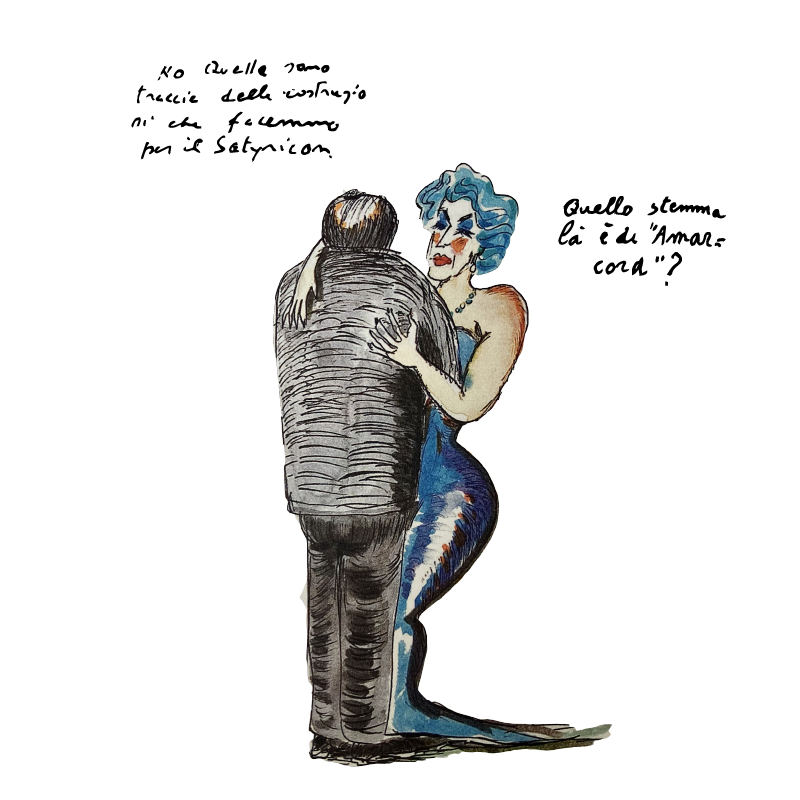 No Quelle sono
traccie delle costruzio
ni che facemmo
per il Satyricon
Quello stemma
là è di "Amar=
cord"?